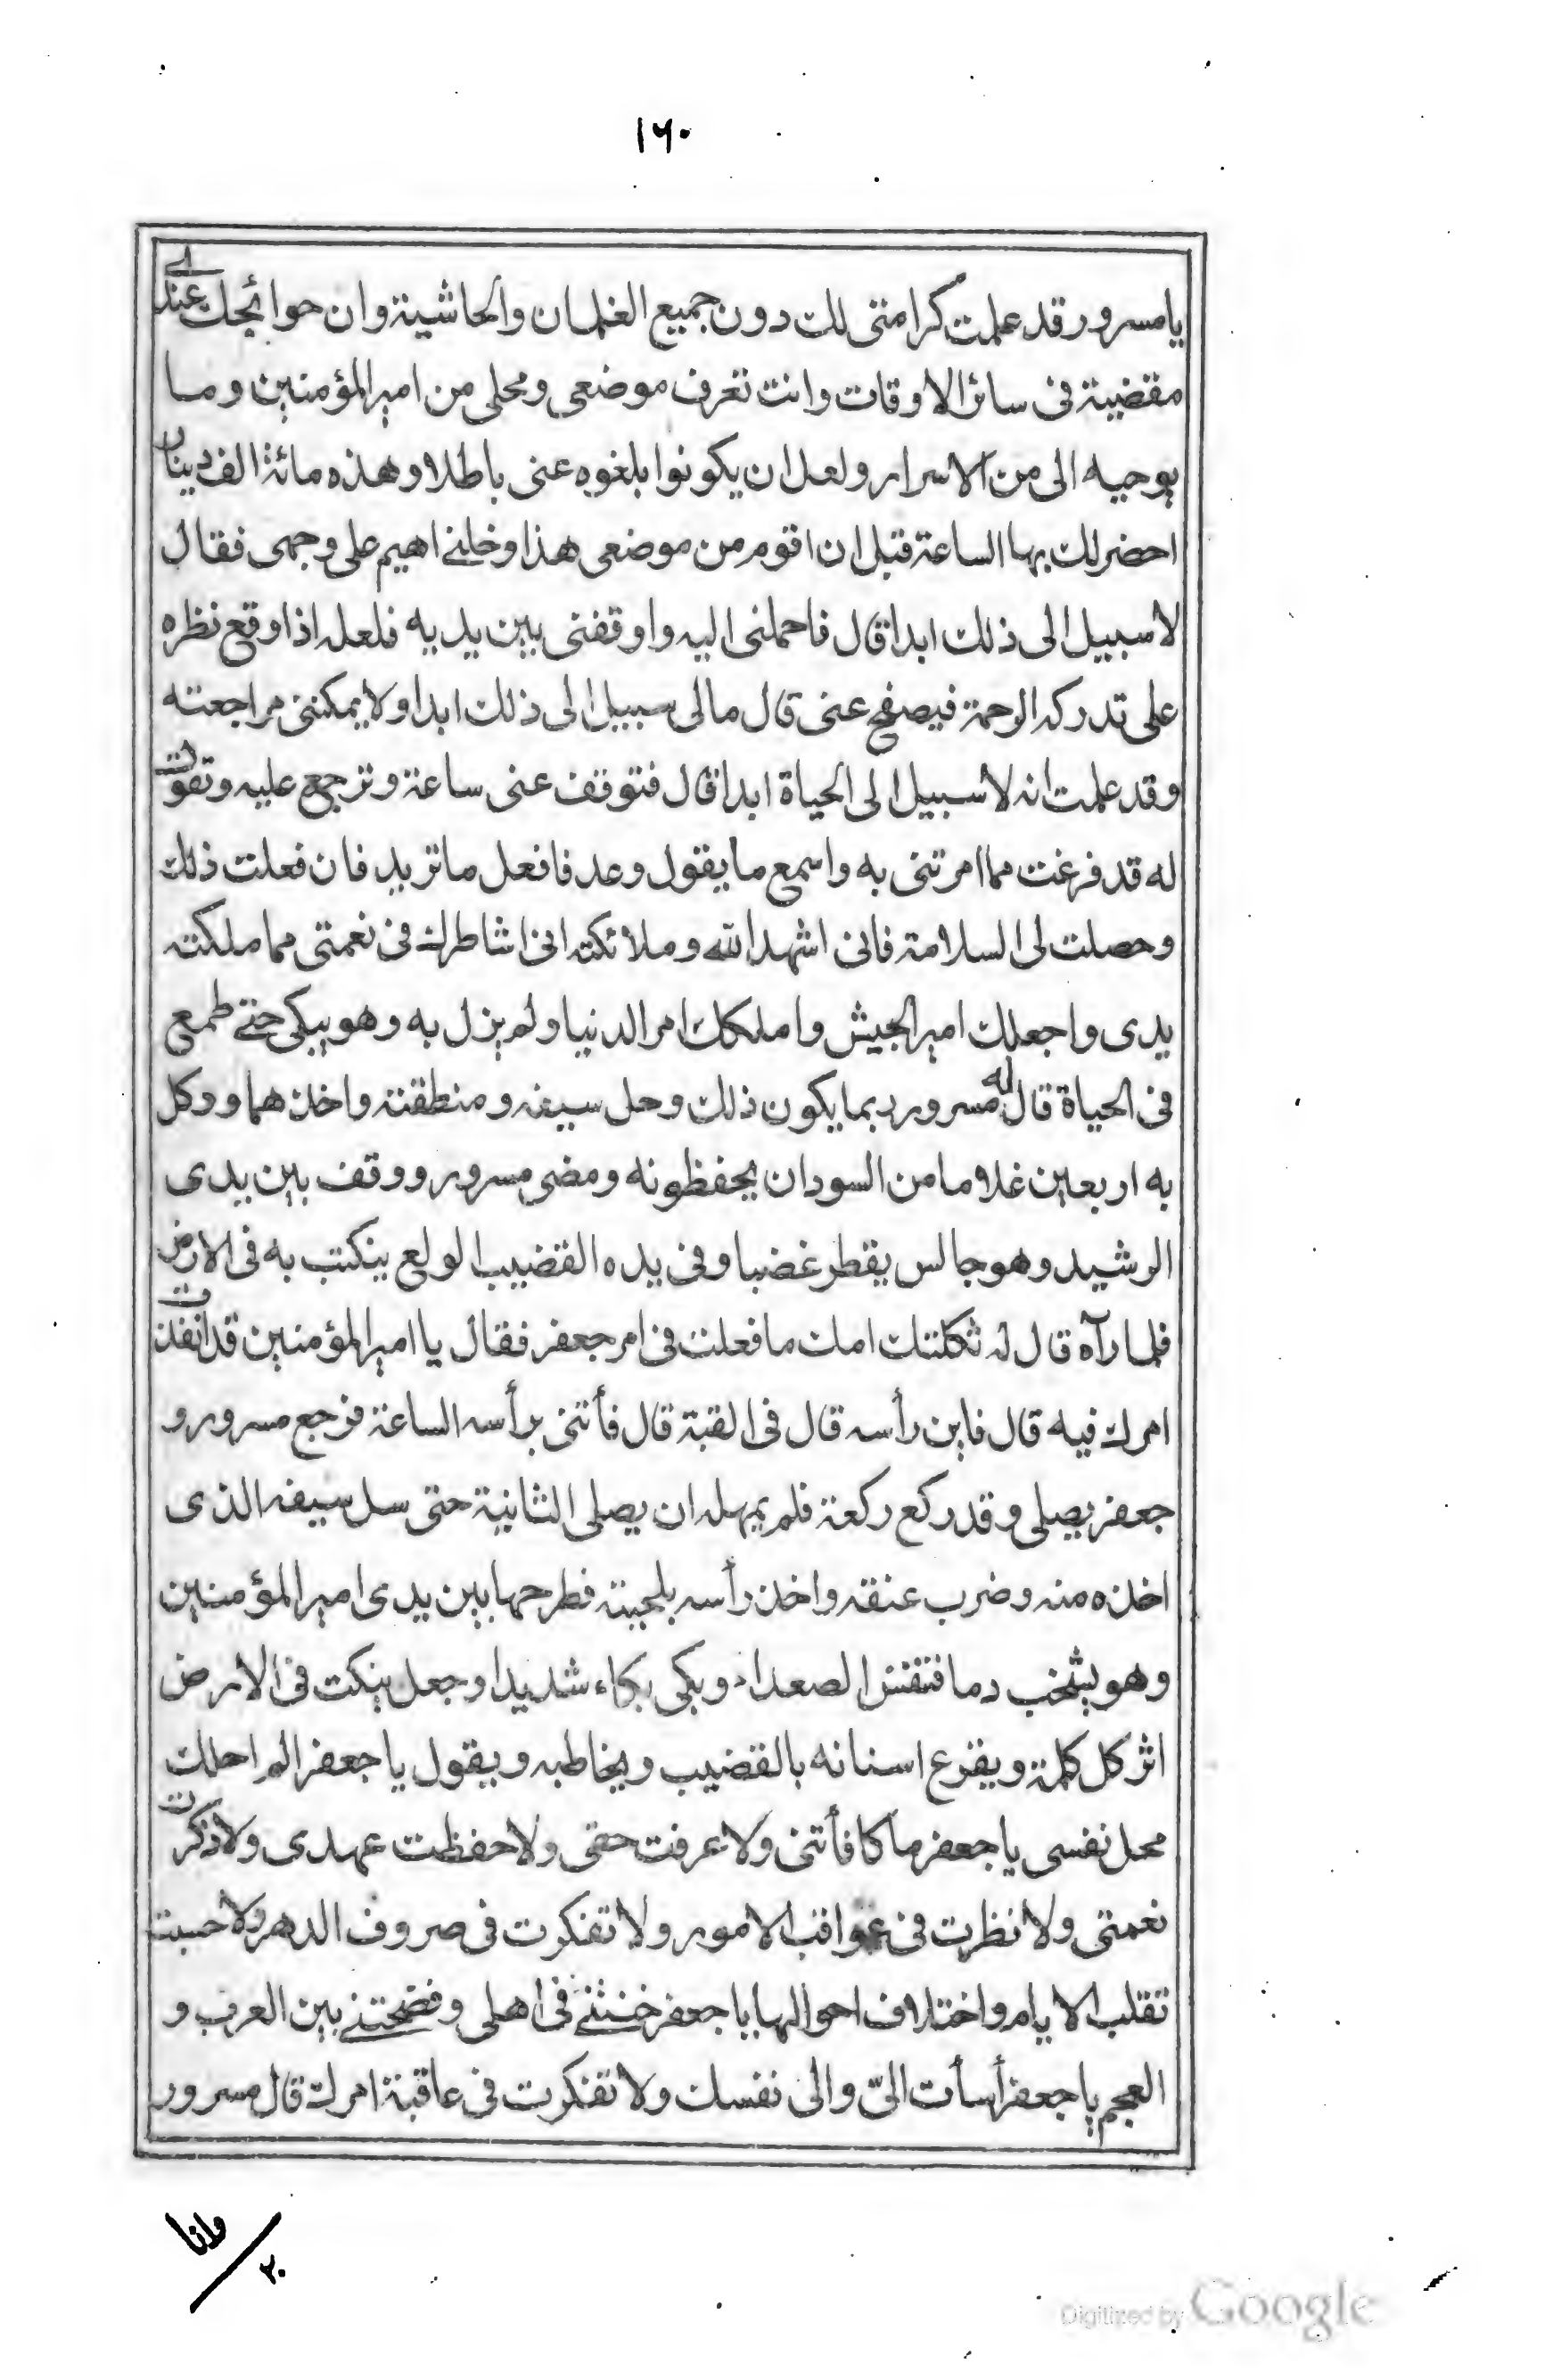 ١٦٠
يامسرور قد علمت كرامتى لك دون جميع الغلمان والحاشية وان حوائجك عندى
مقضية فى سائر الاوقات وانت تعرف موضعى ومحلى من امير المؤمنين وما
يوحيه الى من الاسرار ولعل ان يكونوا بلغوه عنى باطلا وهذه مائة الف دينار
احضر لك بها الساعة قبل ان اقوم من موضعى هذا وخلنى اهيم على وجهى فقال
لاسبيل الى ذلك ابدا قال فاحملنى اليه واوقفنى بين يديه فلعله اذا وقع نظره
على تدركه الرحمة فيصفح عنى قال مالى سبيل الى ذلك ابدا ولا يمكننى مراجعته
وقد علمت انه لاسبيل الى الحياة ابدا قال فتوقف عنى ساعة وترجع عليه وتقول
له قد فرغت مما امرتنى به واسمع ما يقول وعد فافعل ما تريد فان فعلت ذلك
وحصلت لى السلامة فانى اشهد الله وملائكته انى اشاطرك فى نعمتى مما ملكته
يدى واجعلك امير الجيش واملكك امر الدنيا ولم يزل به وهو يبكى حتى طمع
فى الحياة قال له مسرور ربما يكون ذلك وحل سيفه ومنطقته واخذهما ووكل
به اربعين غلاما من السودان يحفظونه ومضى مسرور ووقف بين يدى
الرشيد وهو جالس يقطر غضبا وفى يده القضيب الولع ينكت به فى الارض
فلما رآه قال له ثكلتك امك ما فعلت فى امر جعفر فقال يا امير المؤمنين قد انفذت
امرك فيه قال فاين رأسه قال فى القبة قال فأتنى برأسه الساعة فرجع مسرور و
جعفر يصلى وقد ركع ركعة فلم يمهله ان يصلى الثانية حتى سل سيفه الذى
اخذه منه وضرب عنقه واخذ رأسه بلحيته فطرحها بين يدى امير المؤمنين
وهو يشخب دما فتنفس الصعداء وبكى بكاء شديدا وجعل ينكت فى الارض
اثر كل كلمة ويقرع اسنانه بالقضيب ويخاطبه ويقول يا جعفر الم احلك
محل نفسى يا جعفر ما كافأتنى ولا عرفت حقى ولا حفظت عهدى ولا ذكرت
نعمتى ولا نظرت فى عواقب الامور ولا تفكرت فى صروف الدهر ولا حسبت
تقلب الايام واختلاف احوالها يا جعفر خنتنى فى اهلى وفضحتنى بين العرب و
العجم يا جعفر أسأت الىّ والى نفسك ولا تفكرت فى عاقبة امرك قال مسرور
وانا
٢٠
Digitized by Google